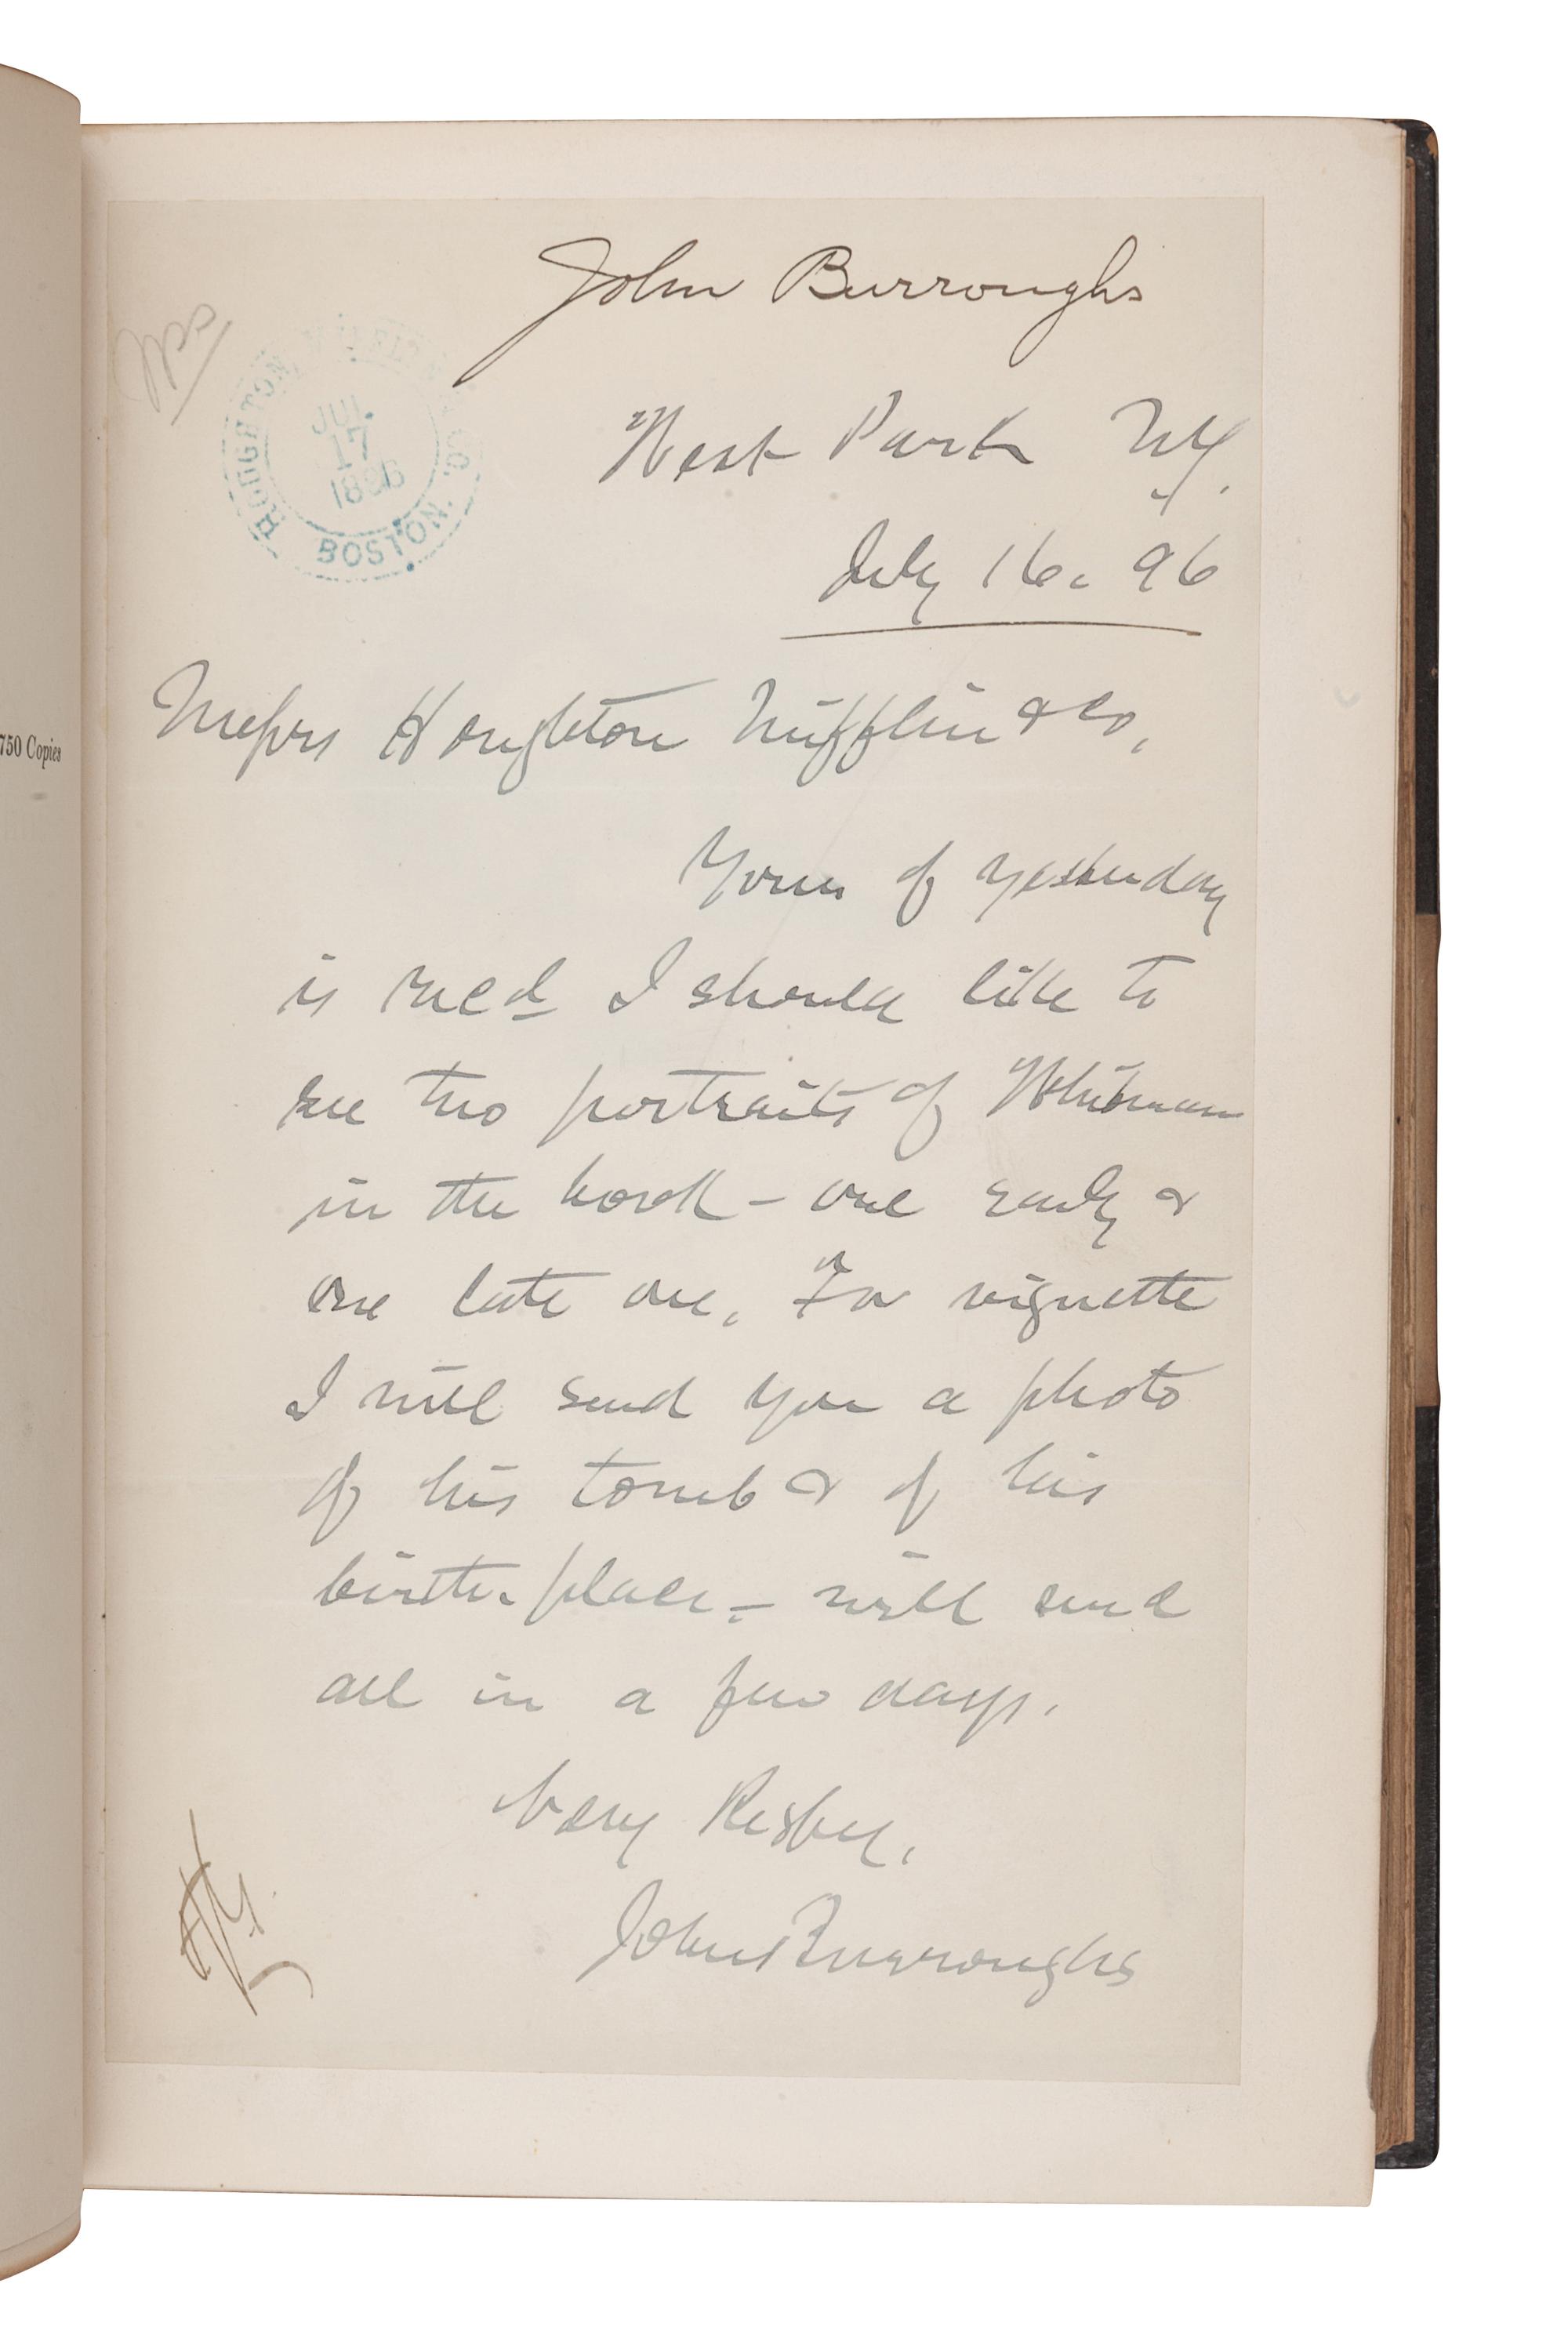 John Burroughs
HOUGHTON, MIFFLIN & CO.
JUL
17
1896
BOSTON.
West Park N.Y.
July 16. 96
750 Copies
Messrs Houghton Mifflin & Co,
Yours of yesterday
is recd I should like to
see two portraits of Whitman
in the book – one early &
one late one. For vignette
I will send you a photo
of his tomb & of his
birth-place – will send
all in a few days.
Very Respy,
John Burroughs